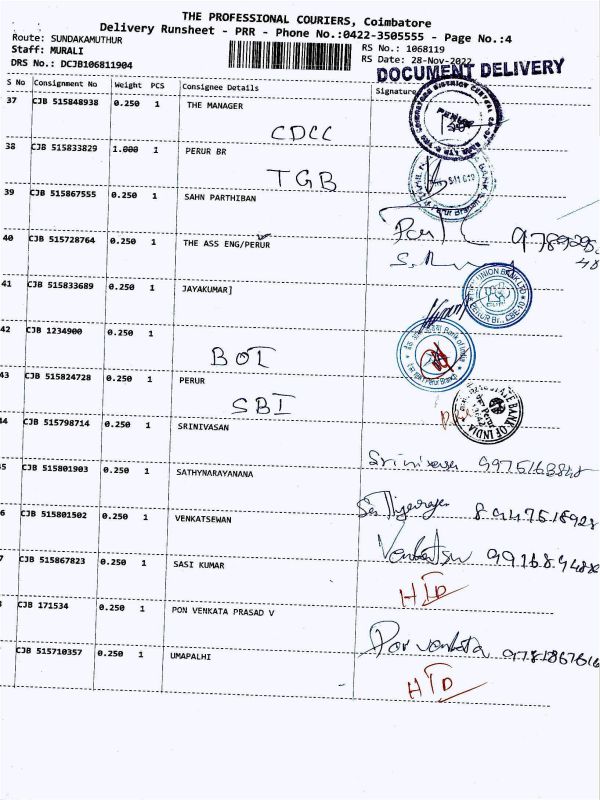 THE PROFESSIONAL COURIERS, Coimbatore
Delivery Runsheet - PRR - Phone No.:0422-3505555 - Page No.:4
Route: SUNDAKAMUTHUR
RS No.: 1068119
Staff: MURALI
RS Date: 28-Nov-2022
DRS No.: DCJB106811904
DOCUMENT DELIVERY
S No Consignment No Weight PCS Consignee Details Signature
37 CJB 515848938 0.250 1 THE MANAGER
CDCC
38 CJB 515833829 1.000 1 PERUR BR
TGB
39 CJB 515867555 0.250 1 SAHN PARTHIBAN
40 CJB 515728764 0.250 1 THE ASS ENG/PERUR
41 CJB 515833689 0.250 1 JAYAKUMAR]
UNION BANK LTD
42 CJB 1234900 0.250 1
BOI
Bank of India
43 CJB 515824728 0.250 1 PERUR
SBI
STATE BANK OF INDIA
44 CJB 515798714 0.250 1 SRINIVASAN
45 CJB 515801903 0.250 1 SATHYNARAYANANA
6 CJB 515801502 0.250 1 VENKATSEWAN
7 CJB 515867823 0.250 1 SASI KUMAR
HTD
CJB 171534 0.250 1 PON VENKATA PRASAD V
Pon venkata
CJB 515710357 0.250 1 UMAPALHI
HTD